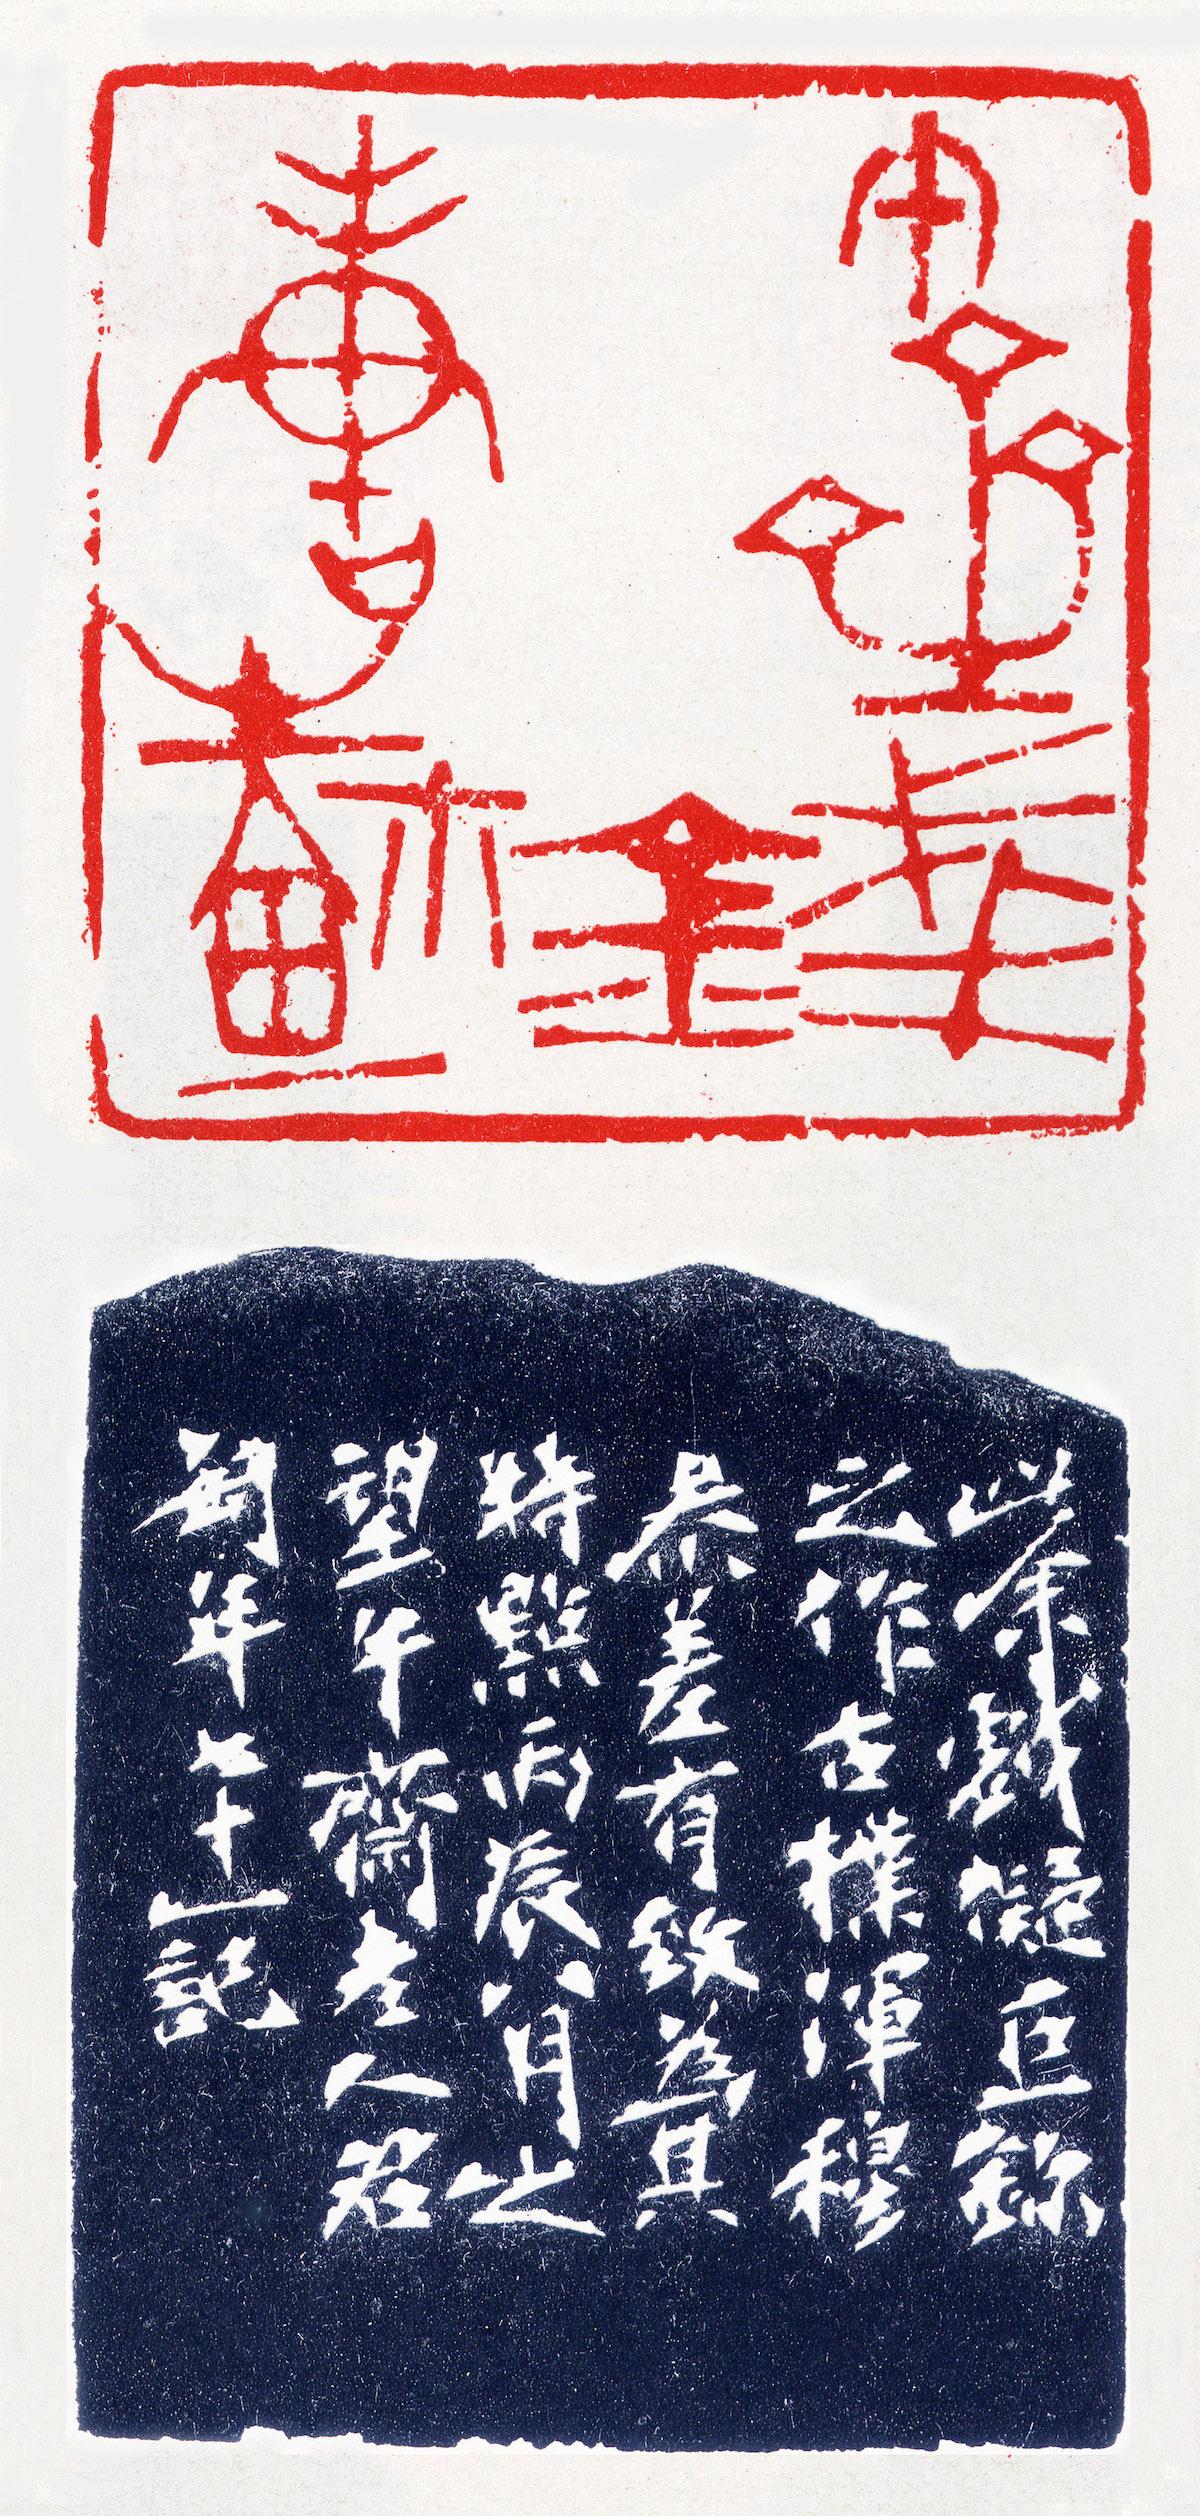 此余戲擬巨鉨
之作古樸渾穆
參差有致為其
特點丙辰八月之
望午齋老人君
匋年七十一記